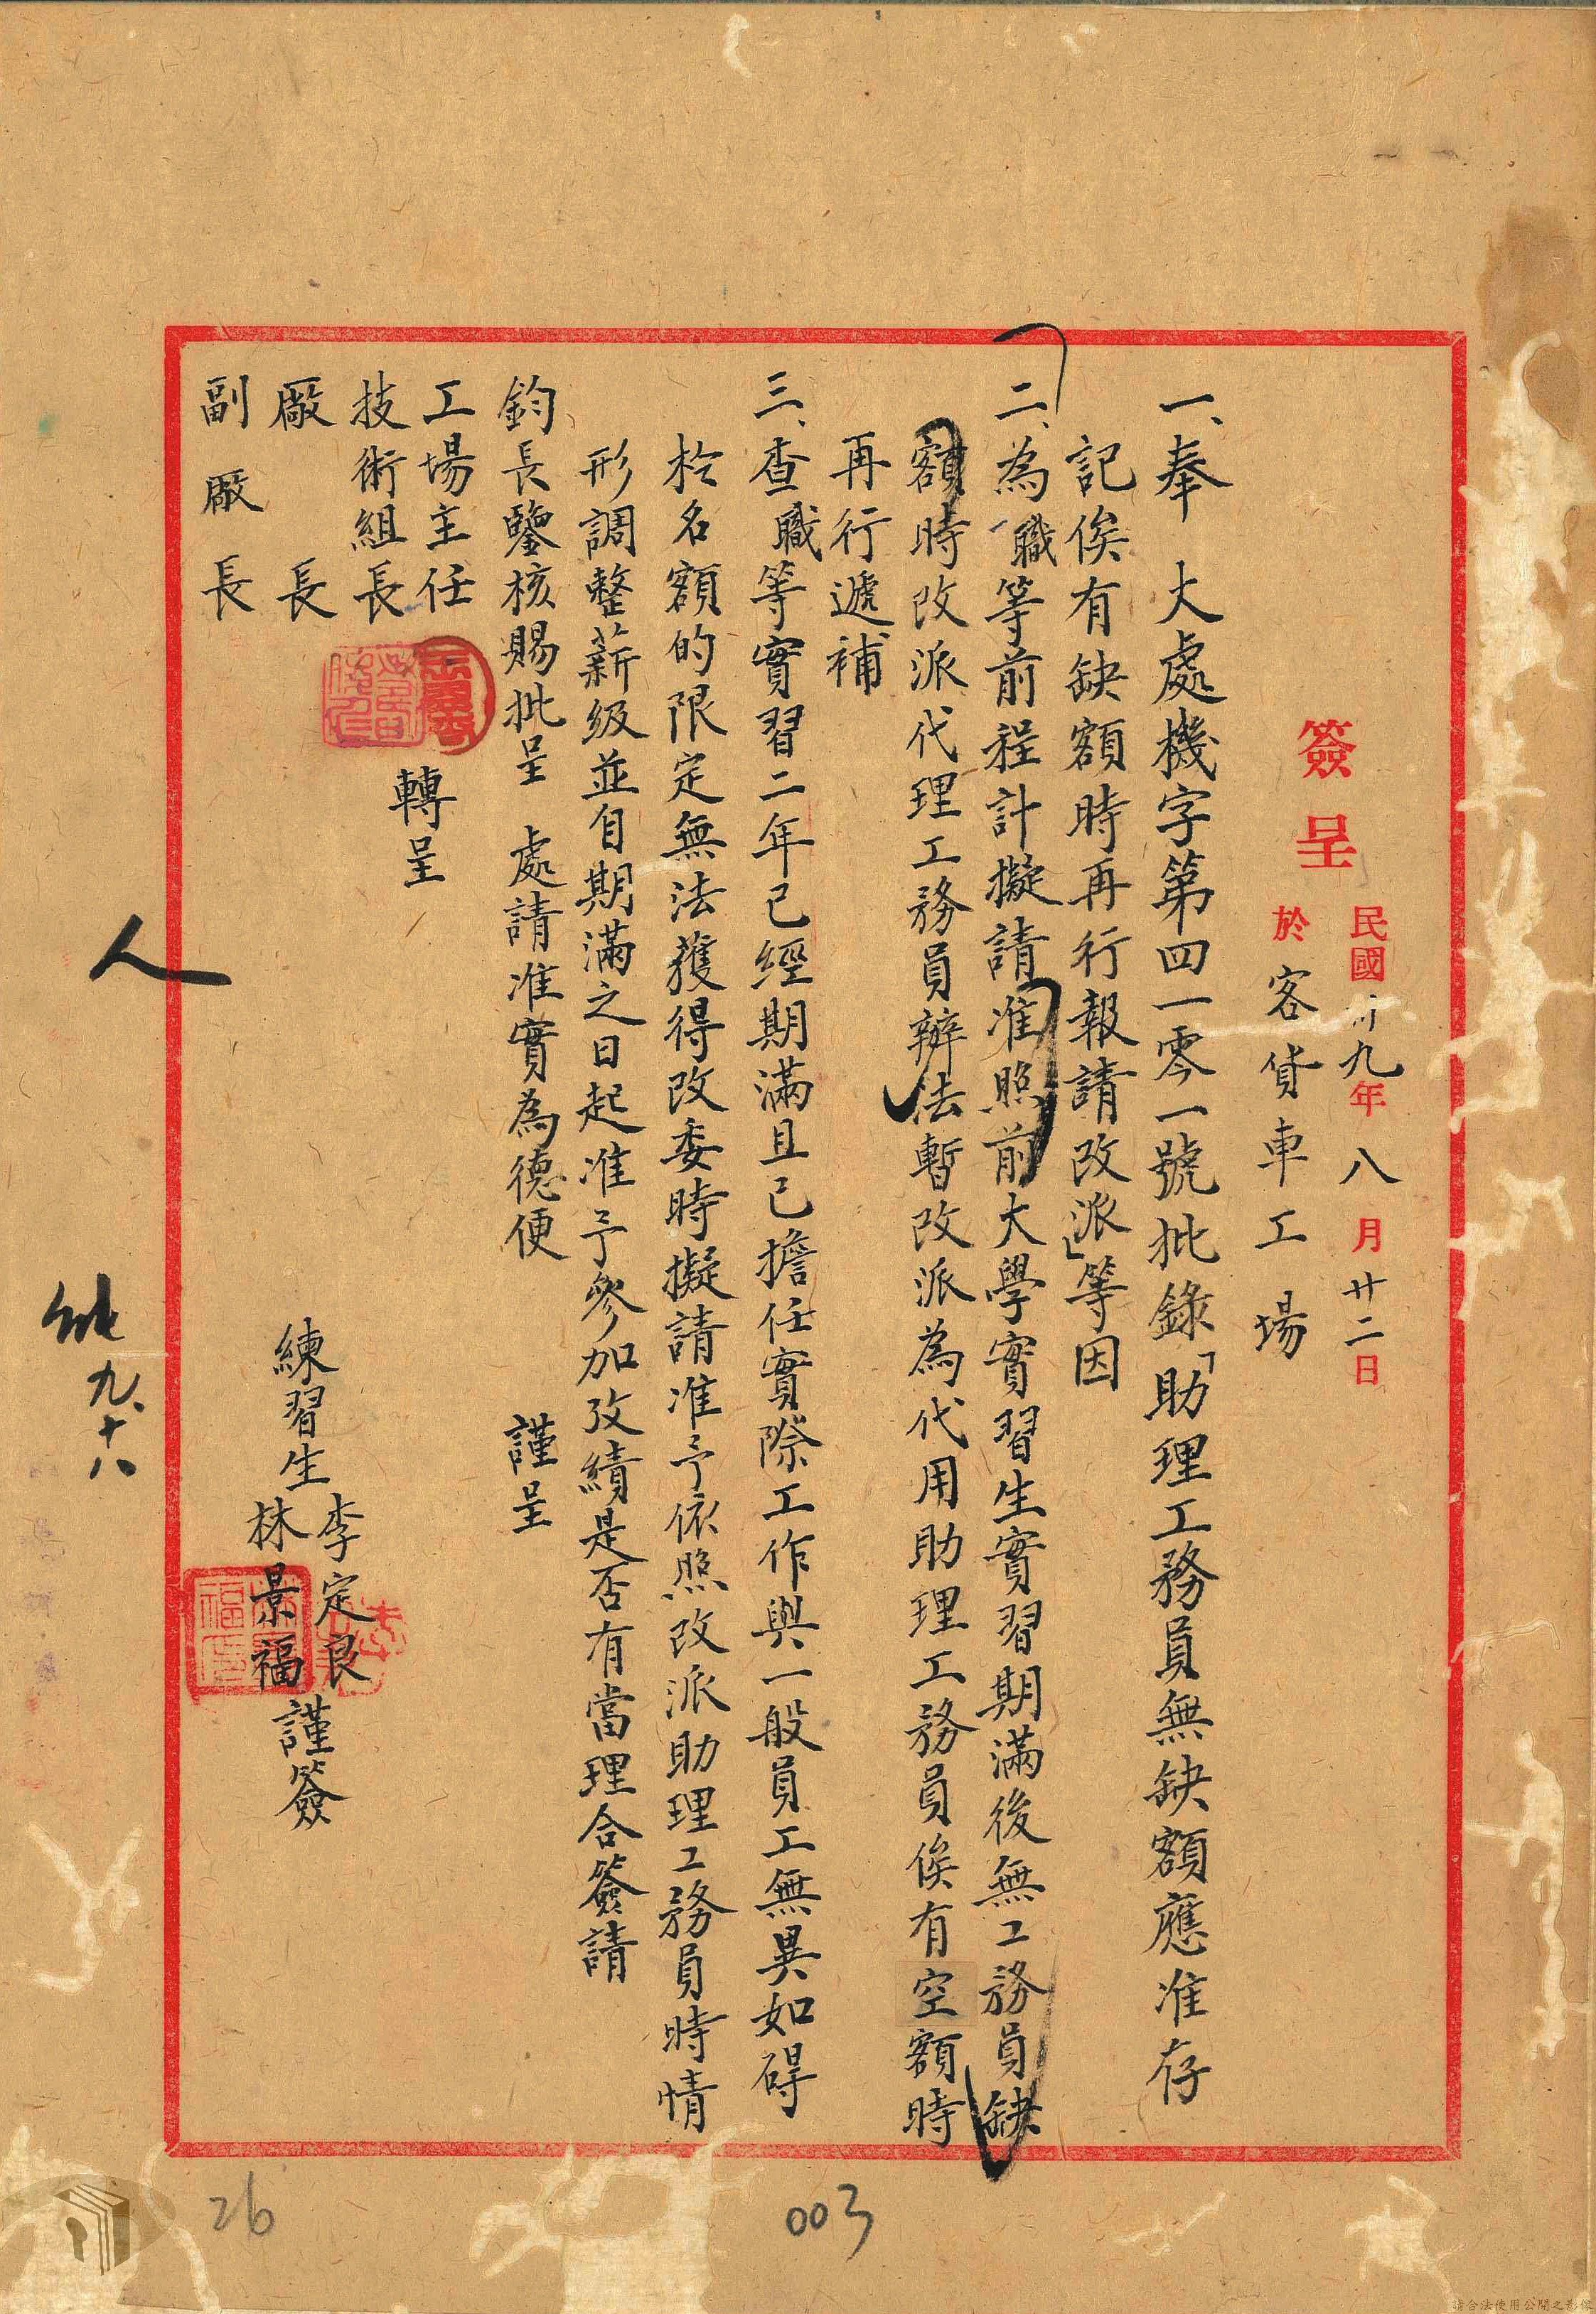 簽呈
民國卅九年八月廿二日
於客貨車工場
一、奉　大處機字第四一零一號批錄「助理工務員無缺額應准存
記俟有缺額時再行報請改派」等因
二、為職等前程計擬請准照前大學實習生實習期滿後無工務員缺
額時改派代理工務員辦法暫改派為代用助理工務員俟有空額時
再行遞補
三、查職等實習二年已經期滿且已擔任實際工作與一般員工無異如碍
於名額的限定無法獲得改委時擬請准予依照改派助理工務員時情
形調整薪級並自期滿之日起准予參加攷績是否有當理合簽請
鈞長鑒核賜批呈　處請准實為德便　謹呈
工場主任
技術組長　轉呈
廠長
副廠長
練習生 李定良
林景福 謹簽
人
九、十八
26
003
請合法使用公開之影像